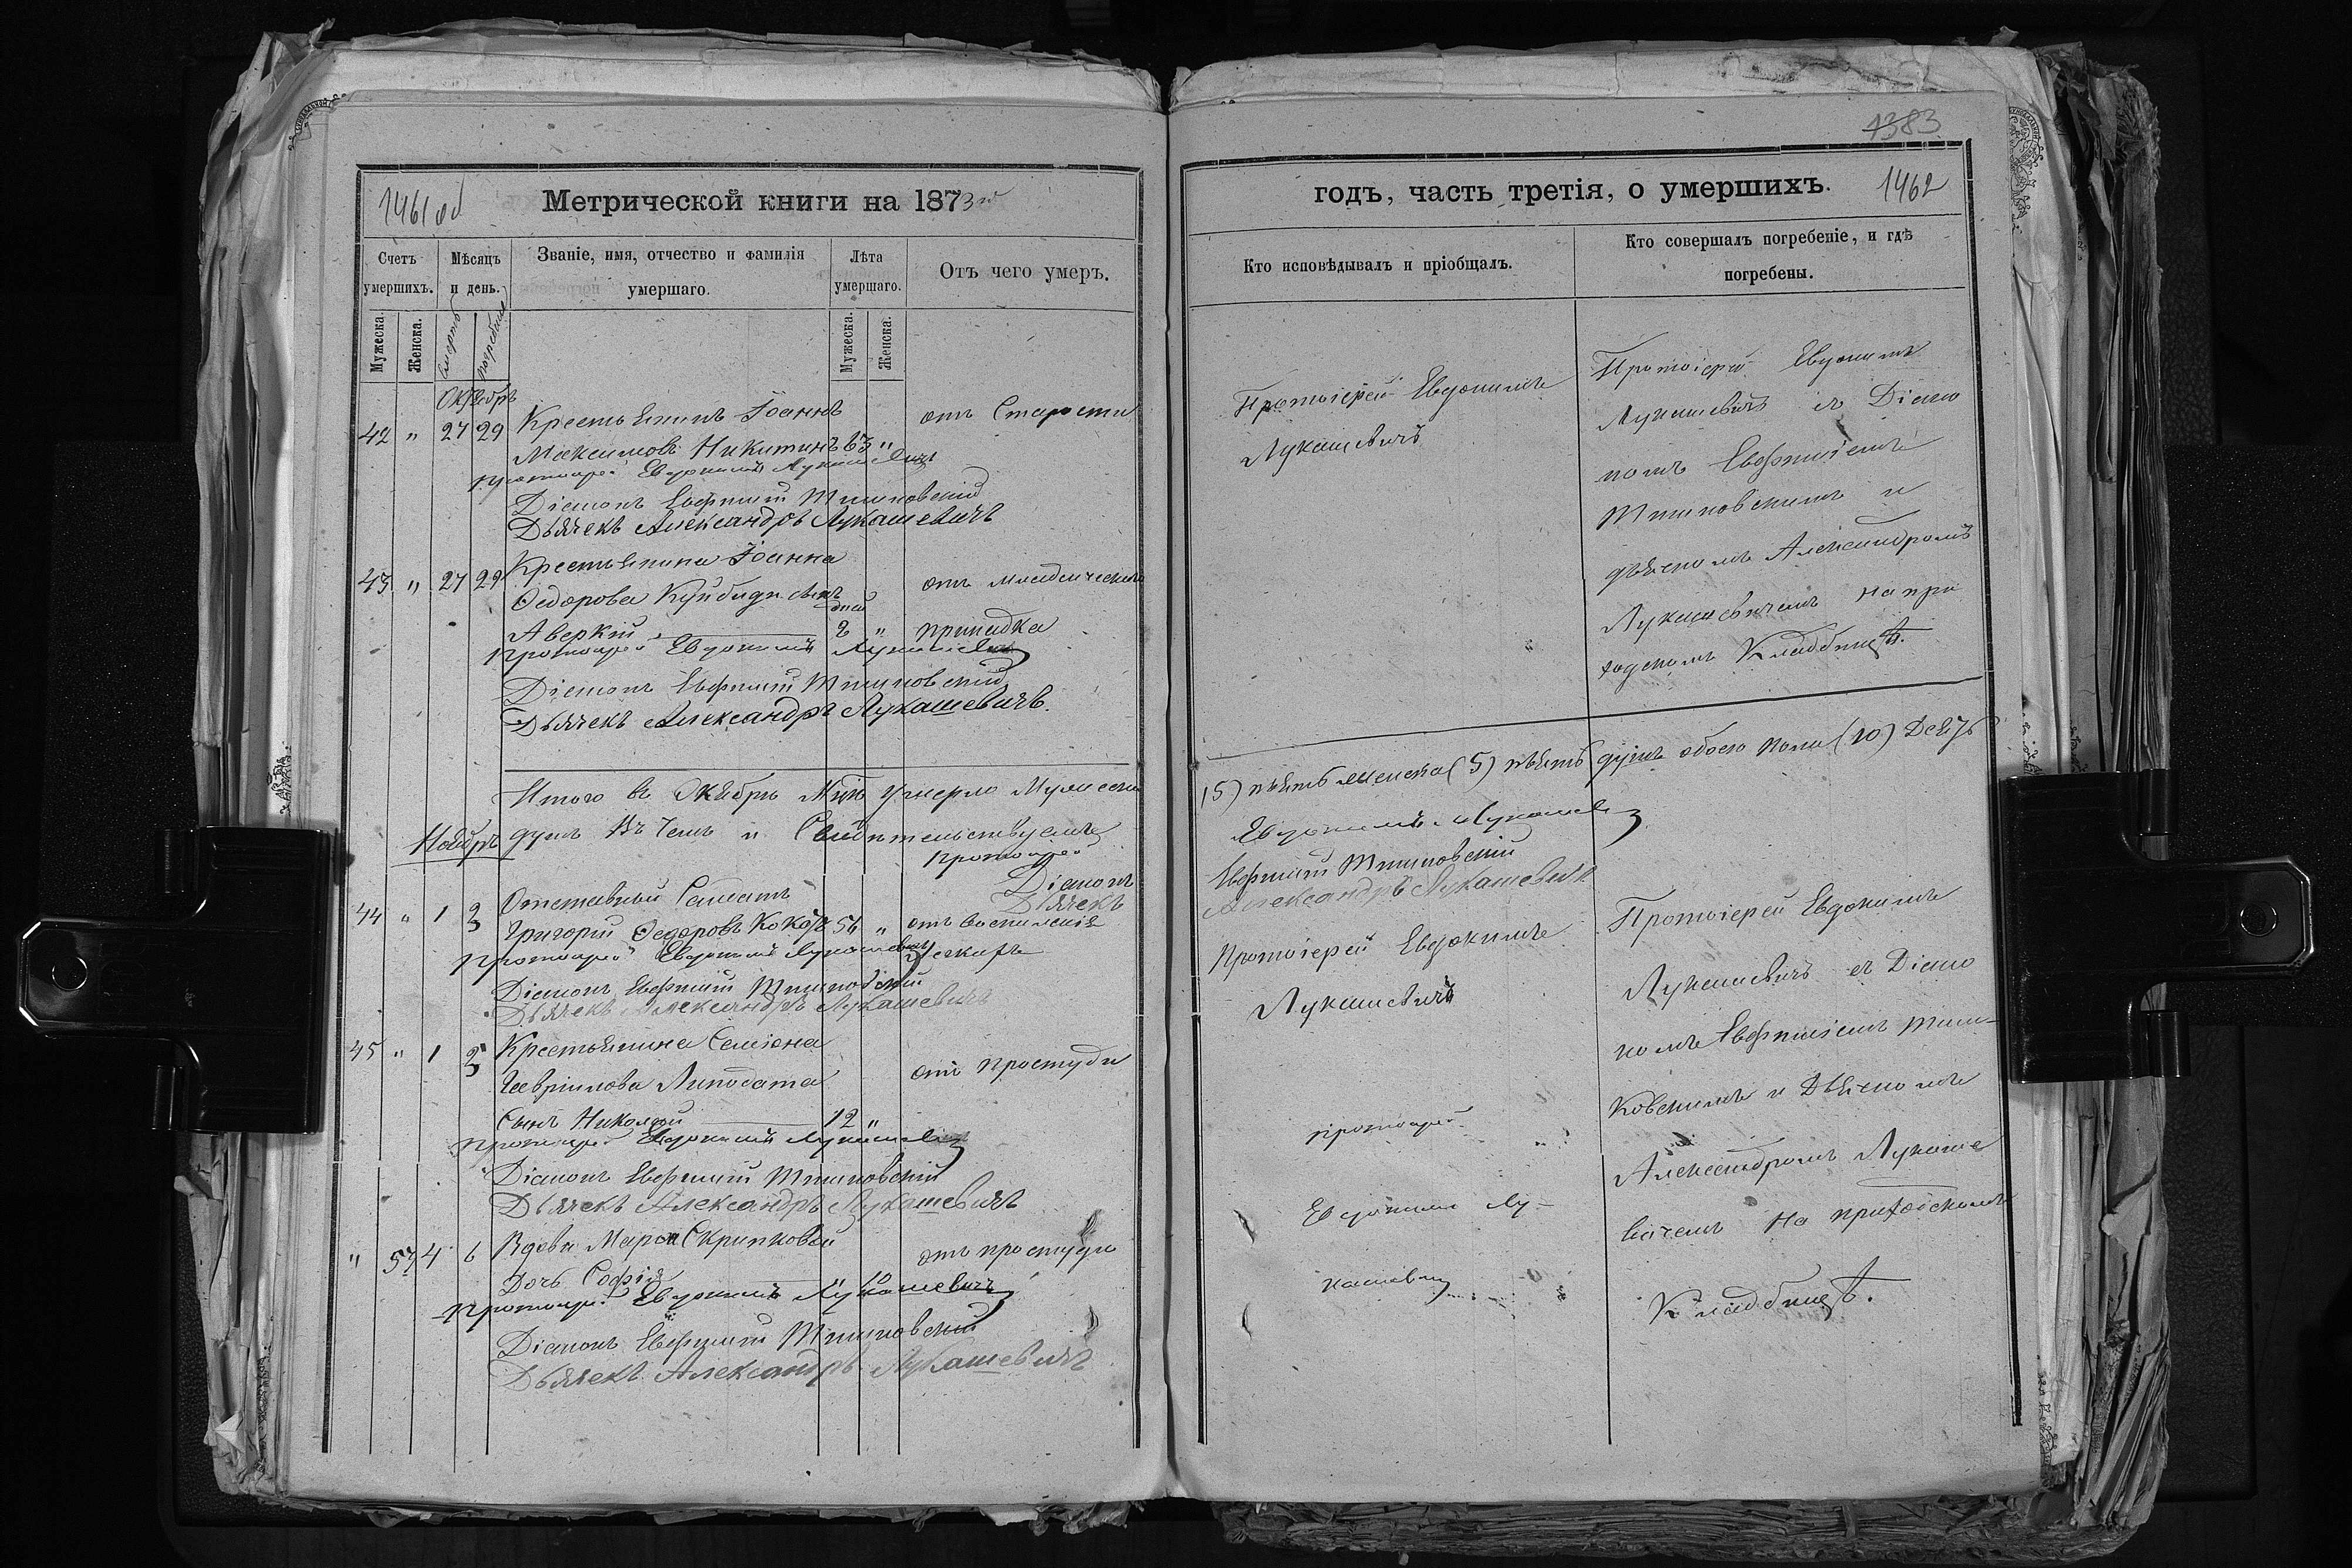 1461 об
Метрической книги на 1873й
Счетъ умершихъ.
Мѣсяцъ и день.
Званіе, имя, отчество и фамилія умершаго.
Лѣта умершаго.
Отъ чего умеръ.
Мужеска.
Женска.
смерть
погребеніе
Мужеска.
Женска.
Октябрь
42 " 27 29 Крестьянинъ Іоаннъ отъ Старости
Максимовъ Никитинъ 63 "
Протоіерей Евдокимъ Лукашевичъ
Діаконъ Евфимій
Дьячекъ Александръ Лукашевичъ
43 " 27 29 Крестьянина Іоанна
Ѳедорова сынъ отъ младенческаго
дней
Аверкій 8 " припадка
Протоіерей Евдокимъ Лукашевичъ
Діаконъ Евфимій
Дьячекъ Александръ Лукашевичъ.
Итого въ Октябрѣ М-цѣ умерло Мужеска
душъ въ чемъ и Свидѣтельствуемъ
Ноябрь
Протоіерей
Діаконъ
Дьячекъ
44 " 1 3 Отставный Солдатъ
Григорій Ѳедоровъ 56 " отъ воспаленія
Протоіерей Евдокимъ Лукашевичъ
Діаконъ Евфимій
Дьячекъ Александръ Лукашевичъ
45 " 1 3 Крестьянина Семіона
Гавріилова отъ простуды
Сынъ Николай 12 "
Протоіерей Евдокимъ Лукашевичъ
Діаконъ Евфимій
Дьячекъ Александръ Лукашевичъ
" 57 4 6 Вдовы Скрипковой отъ простуды
Дочь Софія " 10
Протоіерей Евдокимъ Лукашевичъ
Діаконъ Евфимій
Дьячекъ Александръ Лукашевичъ
1383
годъ, часть третія, о умершихъ.
1462
Кто исповѣдывалъ и пріобщалъ.
Кто совершалъ погребеніе, и гдѣ погребены.
Протоіерей Евдокимъ
Лукашевичъ
Протоіерей Евдокимъ
Лукашевичъ съ Діако
номъ Евфиміемъ
и
дьячкомъ Александромъ
Лукашевичемъ на при
ходскомъ Кладбищѣ.
(5) пять женска (5) пять душъ обоего пола (10) Десять
Евдокимъ Лукашевичъ
Евфимій
Александръ Лукашевичъ
Протоіерей Евдокимъ
Лукашевичъ
Протоіерей
Евдокимъ Лу-
кашевичъ
Протоіерей Евдокимъ
Лукашевичъ съ Діако
номъ Евфиміемъ
ковскимъ и Дьячкомъ
Александромъ Лукаше
вичемъ на приходскомъ
Кладбищѣ.